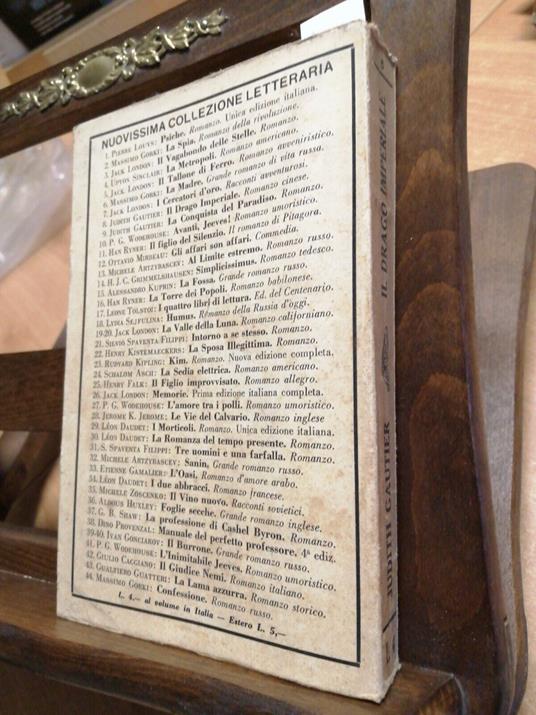 NUOVISSIMA COLLEZIONE LETTERARIA
1. PIERRE LOUYS: Psiche. Romanzo. Unica edizione italiana.
2. MASSIMO GORKI: La Spia. Romanzo della rivoluzione.
3. JACK LONDON: Il Vagabondo delle Stelle. Romanzo.
4. UPTON SINCLAIR: La Metropoli. Romanzo americano.
5. JACK LONDON: Il Tallone di Ferro. Romanzo avveniristico.
6. MASSIMO GORKI: La Madre. Grande romanzo di vita russa.
7. JACK LONDON: I Cercatori d'oro. Racconti avventurosi.
8. JUDITH GAUTIER: Il Drago Imperiale. Romanzo cinese.
9. JUDITH GAUTIER: La Conquista del Paradiso. Romanzo.
10. P. G. WODEHOUSE: Avanti, Jeeves! Romanzo umoristico.
11. HAN RYNER: Il figlio del Silenzio. Il romanzo di Pitagora.
12. OTTAVIO MIRBEAU: Gli affari son affari. Commedia.
13. MICHELE ARTZYBASCEV: Al Limite estremo. Romanzo russo.
14. H. J. C. GRIMMELSHAUSEN: Simplicissimus. Romanzo tedesco.
15. ALESSANDRO KUPRIN: La Fossa. Grande romanzo russo.
16. HAN RYNER: La Torre dei Popoli. Romanzo babilonese.
17. LEONE TOLSTOI: I quattro libri di lettura. Ed. del Centenario.
18. LYDIA SEJFULINA: Humus. Romanzo della Russia d'oggi.
19-20. JACK LONDON: La Valle della Luna. Romanzo californiano.
21. SILVIO SPAVENTA FILIPPI: Intorno a se stesso. Romanzo.
22. HENRY KISTEMAECKERS: La Sposa Illegittima. Romanzo.
23. RUDYARD KIPLING: Kim. Romanzo. Nuova edizione completa.
24. SCHALOM ASCH: La Sedia elettrica. Romanzo americano.
25. HENRY FALK: Il Figlio improvvisato. Romanzo allegro.
26. JACK LONDON: Memorie. Prima edizione italiana completa.
27. P. G. WODEHOUSE: L'amore tra i polli. Romanzo umoristico.
28. JEROME K. JEROME: Le Vie del Calvario. Romanzo inglese
29. LÉON DAUDET: I Morticoli. Romanzo. Unica edizione italiana.
30. LÉON DAUDET: La Romanza del tempo presente. Romanzo.
31. S. SPAVENTA FILIPPI: Tre uomini e una farfalla. Romanzo.
32. MICHELE ARTZYBASCEV: Sanin. Grande romanzo russo.
33. ETIENNE GAMALIER: L'Oasi. Romanzo d'amore arabo.
34. LÉON DAUDET: I due abbracci. Romanzo francese.
35. MICHELE ZOSCENKO: Il Vino nuovo. Racconti sovietici.
36. ALDOUS HUXLEY: Foglie secche. Grande romanzo inglese.
37. G. B. SHAW: La professione di Cashel Byron. Romanzo.
38. DINO PROVENZAL: Manuale del perfetto professore. 4ª ediz.
39-40. IVAN GONCIAROV: Il Burrone. Grande romanzo russo.
41. P. G. WODEHOUSE: L'Inimitabile Jeeves. Romanzo umoristico.
42. GIULIO CAGGIANO: Il Giudice Nemi. Romanzo italiano.
43. GUALFIERO GUATTERI: La Lama azzurra. Romanzo storico.
44. MASSIMO GORKI: Confessione. Romanzo russo.
L. 4,— al volume in Italia — Estero L. 5,—
JUDITH GAUTIER
IL DRAGO IMPERIALE